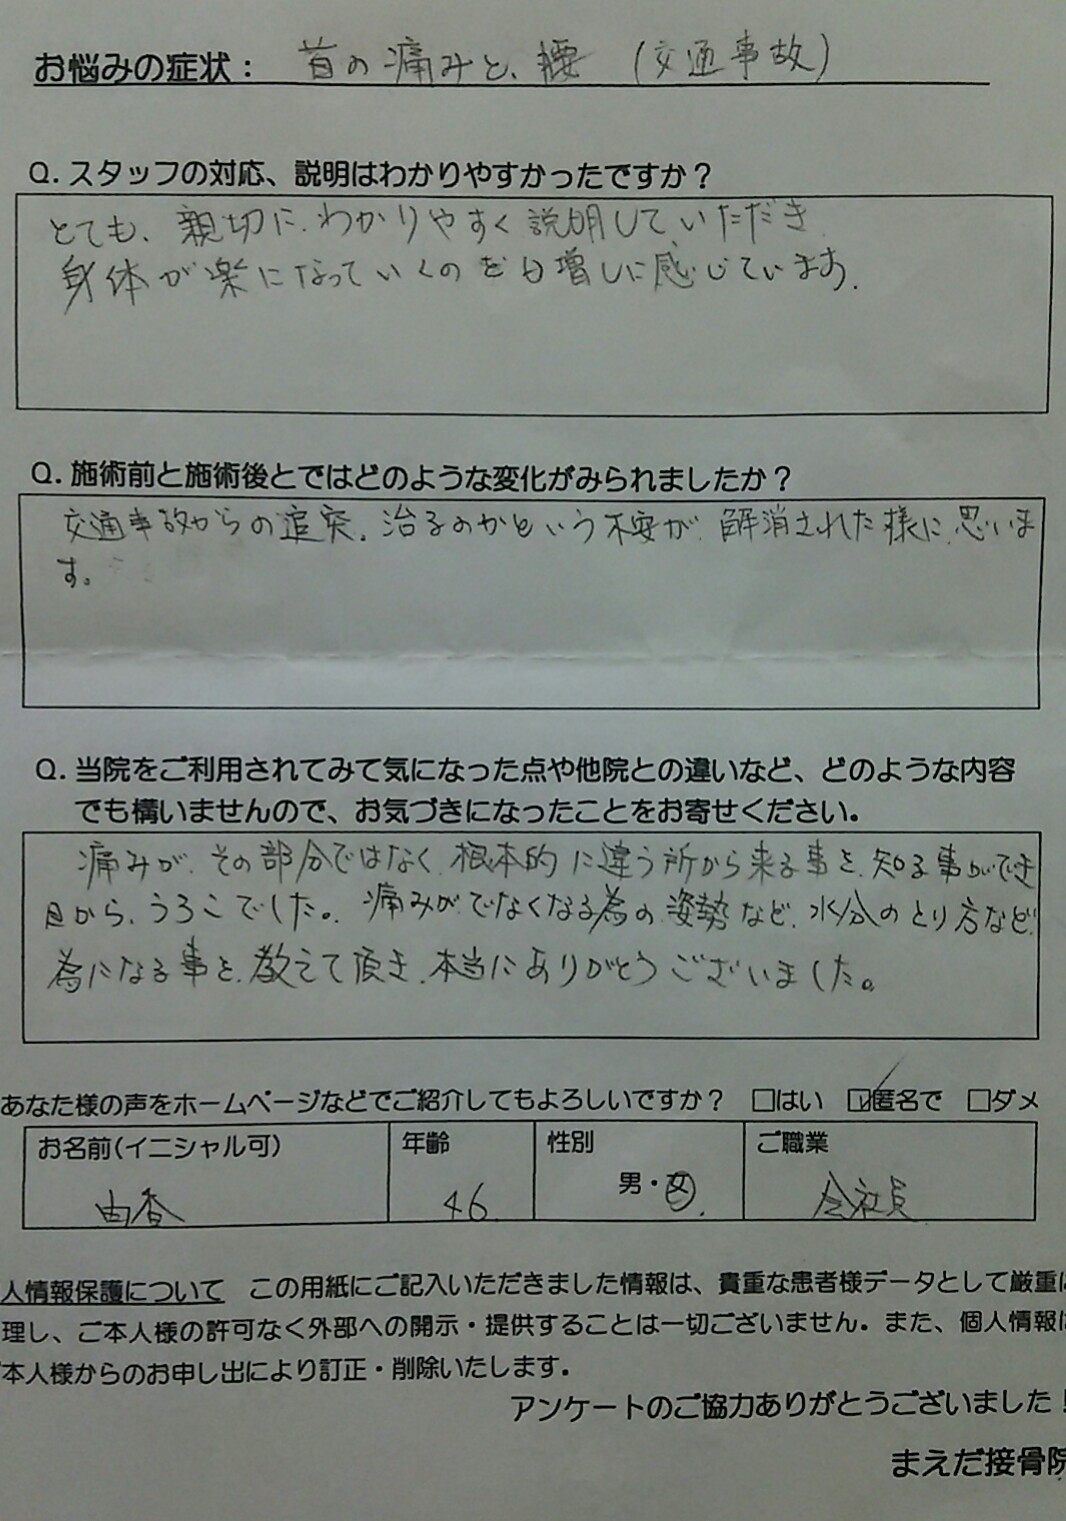 お悩みの症状： 首の痛みと、腰 (交通事故)
Q. スタッフの対応、説明はわかりやすかったですか？
とても、親切に、わかりやすく説明していただき
身体が楽になっていくのを日増しに感じています.
Q. 施術前と施術後とではどのような変化がみられましたか？
交通事故からの追突、治るのかという不安が、解消された様に、思いま
す。
Q. 当院をご利用されてみて気になった点や他院との違いなど、どのような内容
でも構いませんので、お気づきになったことをお寄せください。
痛みが、その部分ではなく、根本的に違う所から来る事を、知る事ができ
目から、うろこでした。痛みがでなくなる為の姿勢など、水分のとり方など
為になる事を、教えて頂き、本当にありがとうございました。
あなた様の声をホームページなどでご紹介してもよろしいですか？ □はい ☑匿名で □ダメ
お名前(イニシャル可) 年齢 性別 ご職業
由香 46 男・女 会社員
人情報保護について この用紙にご記入いただきました情報は、貴重な患者様データとして厳重に
理し、ご本人様の許可なく外部への開示・提供することは一切ございません。また、個人情報は
本人様からのお申し出により訂正・削除いたします。
アンケートのご協力ありがとうございました！
まえだ接骨院